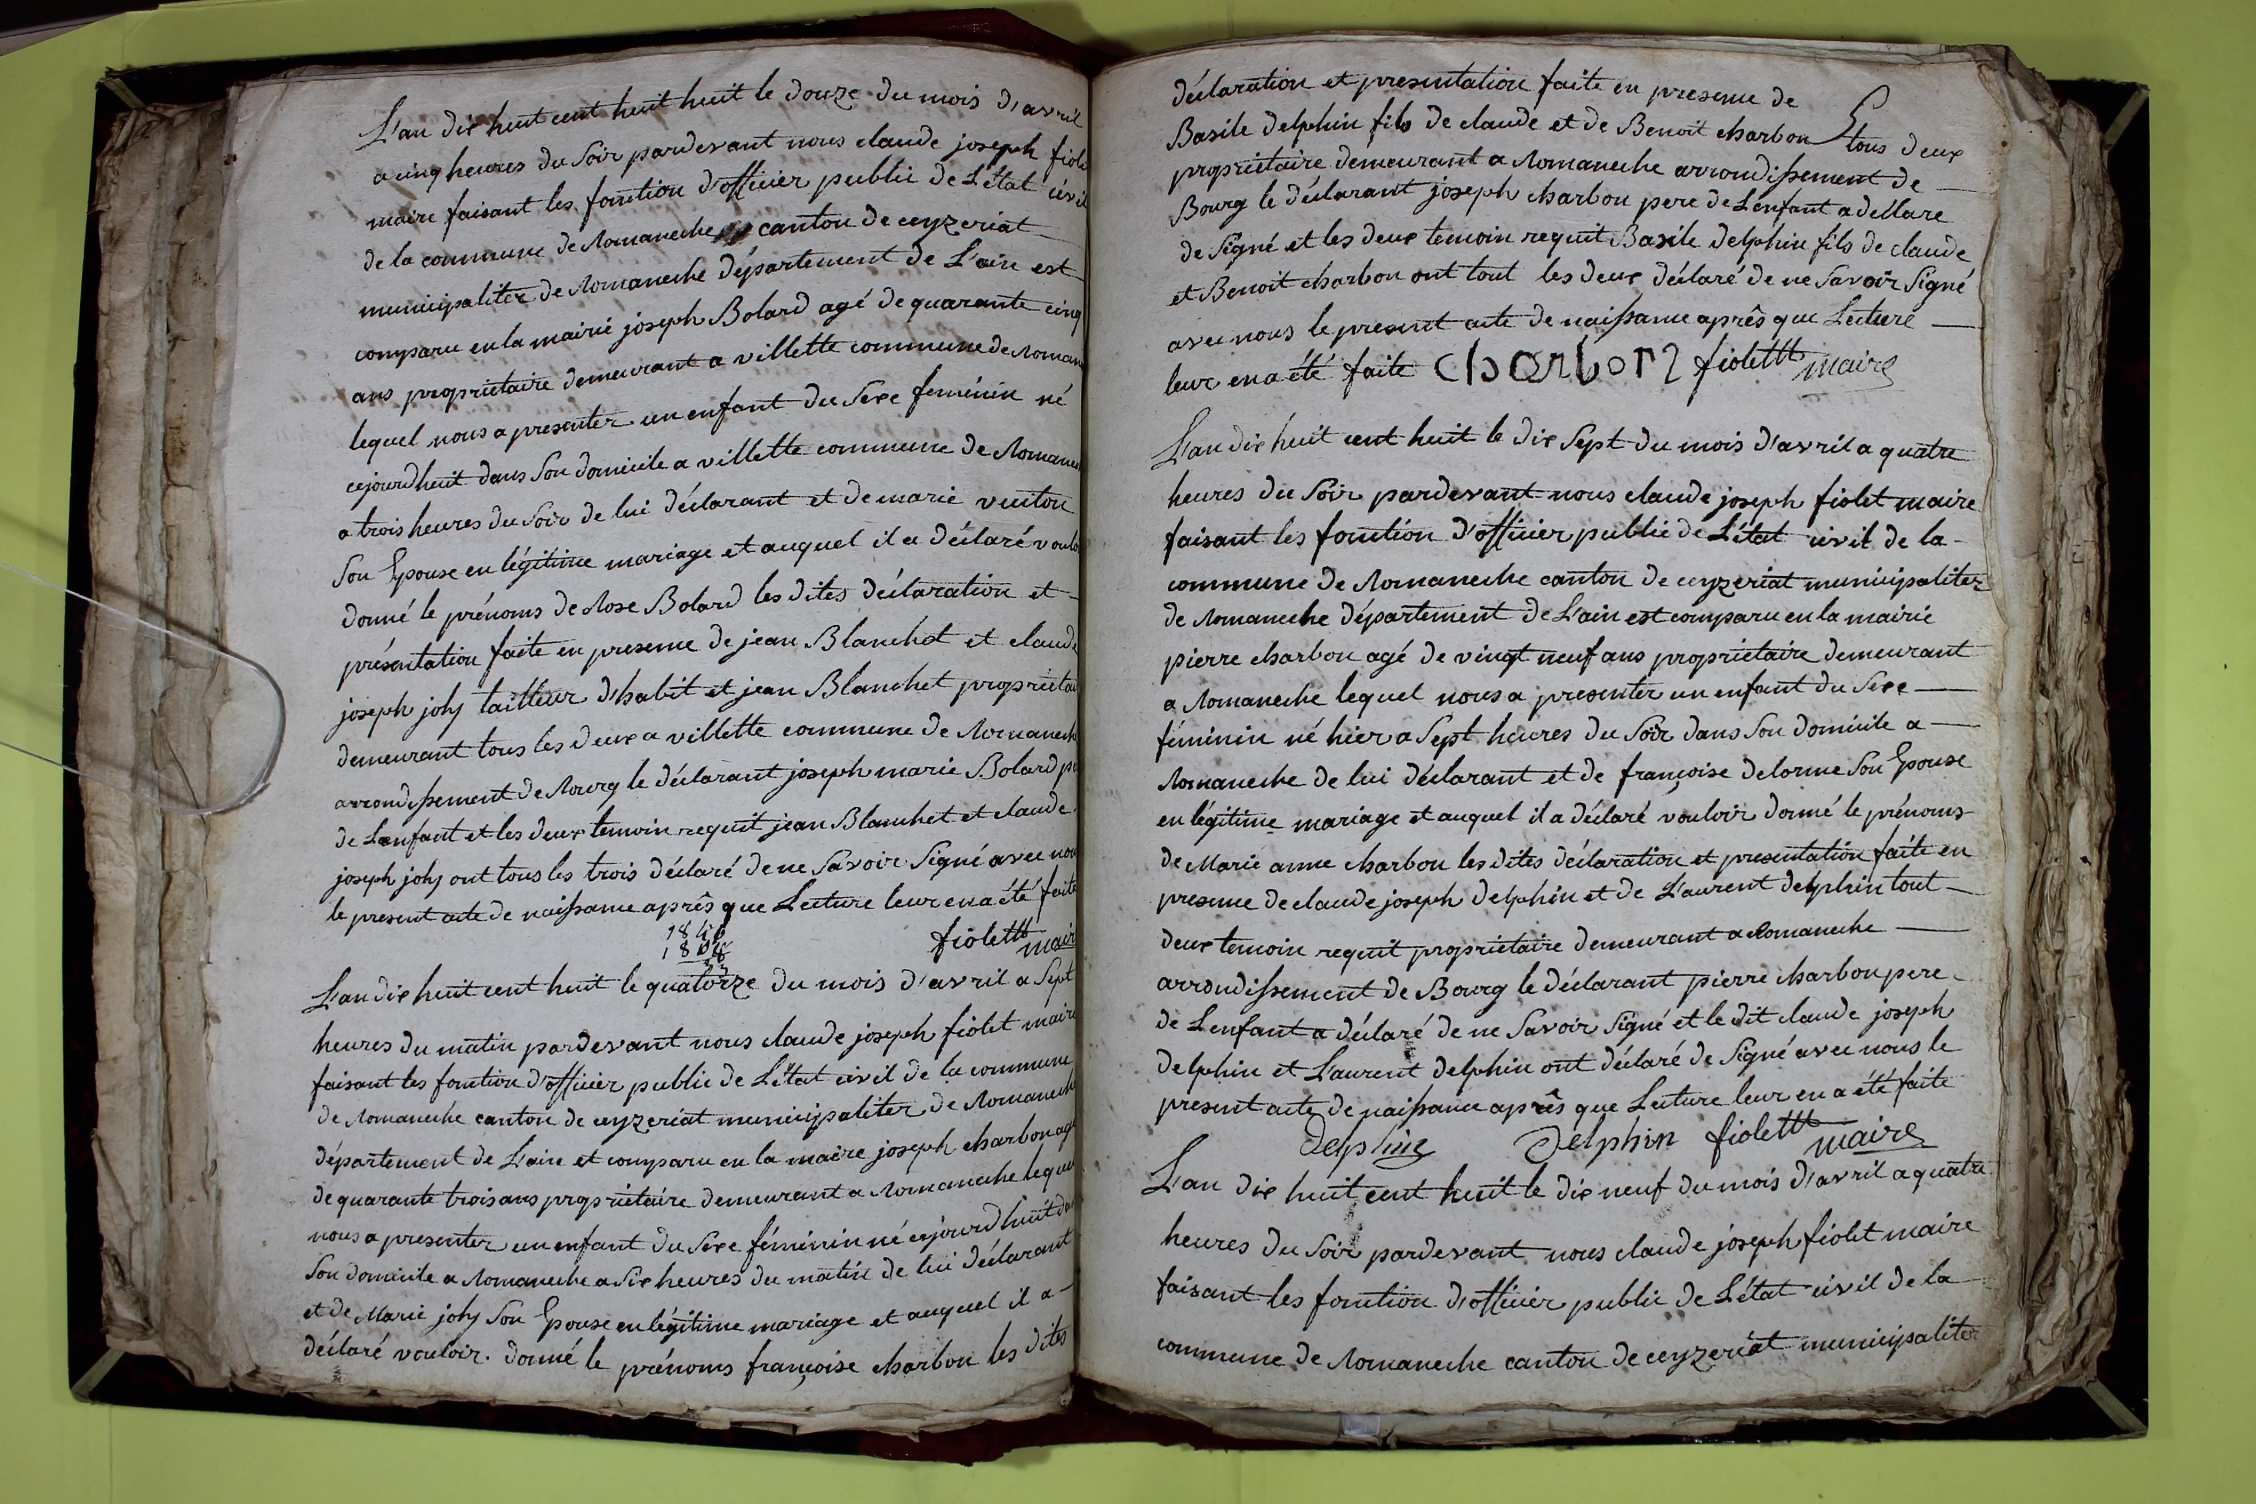 L'an dix huit cent huit huit le douze du mois d'avril
a cinq heures du Soir pardevant nous claude joseph fiole
maire faisant les fonction d'officier public de L'état civil
de la commune de Romaneche canton de ceyzeriat
municipaliter de Romaneche département de L'ain est
comparu en la mairie joseph Bolard agé de quarante cinq
ans propriétaire demeurant a villette commune de Roman
lequel nous a presenter un enfant du Sexe feminin né
cejourdhuit dans Son domicile a villette commune de Romane
a trois heures du Soir de lui déclarant et de marie vuiton
Son Epouse en légitime mariage et auquel il a déclaré voulo
donné le prénoms de Rose Bolard les dites déclaration et
présentation faite en presence de jean Blanchet et claude
joseph joly tailleur d'habit et jean Blanchet proprietai
demeurant tous les deux a villette commune de Romanech
arrondissement de Bourg le déclarant joseph marie Bolard pe
de Lenfant et les deux temoin requit jean Blanchet et claude
joseph joly ont tous les trois déclaré de ne Savoir Signé avec nou
le present acte de naissance après que Lecture leur en a été faite
fiolet maire
L'an dix huit cent huit le quatorze du mois d'avril a Sept
heures du matin pardevant nous claude joseph fiolet maire
faisant les fonction d'officier public de L'état civil de la commune
de Romaneche canton de ceyzeriat municipaliter de Romanech
département de L'ain et comparu en la maire joseph charbon agé
de quarante trois ans propriétaire demeurant a Romaneche lequel
nous a presenter un enfant du Sexe féminin né cejourdhuit da
Son domicile a Romaneche a Six heures du matin de lui déclarant
et de Marie joly Son Epouse en légitime mariage et auquel il a
déclaré vouloir donné le prénoms françoise charbon les dites
déclaration et presentation faite en presence de
Basile delphin fils de claude et de Benoit charbon tous deux
propriétaire demeurant a Romaneche arrondissement de
Bourg le déclarant joseph charbon pere de Lenfant a déclare
de Signé et les deux temoin requit Basile delphin fils de claude
et Benoit charbon ont tout les deux déclaré de ne Savoir Signé
avec nous le present acte de naissance après que Lecture
leur en a été faite charbon fiolet maire
L'an dix huit cent huit le dix Sept du mois d'avril a quatre
heures du Soir pardevant nous claude joseph fiolet maire
faisant les fonction d'officier public de L'état civil de la
commune de Romaneche canton de ceyzeriat municipaliter
de Romaneche département de L'ain est comparu en la mairie
pierre charbon agé de vingt neuf ans proprietaire demeurant
a Romaneche lequel nous a presenter un enfant du Sexe
féminin né hier a Sept heures du Soir dans Son domicile a
Romaneche de lui déclarant et de françoise delorme Son Epouse
en légitime mariage et auquel il a déclaré vouloir donné le prénoms
de Marie anne charbon les dites déclaration et presentation faite en
presence de claude joseph delphin et de L'aurent delphin tout
deux temoin requit propriétaire demeurant a Romaneche
arrondissement de Bourg le déclarant pierre charbon pere
de Lenfant a déclaré de ne Savoir Signé et le dit claude joseph
delphin et L'aurent delphin ont déclaré de Signé avec nous le
present acte de naissance après que Lecture leur en a été faite
Delphin Delphin fiolet maire
L'an dix huit cent huit le dix neuf du mois d'avril a quatre
heures du Soir pardevant nous claude joseph fiolet maire
faisant les fonction d'officier public de L'état civil de la
commune de Romaneche canton de ceyzeriat municipaliter